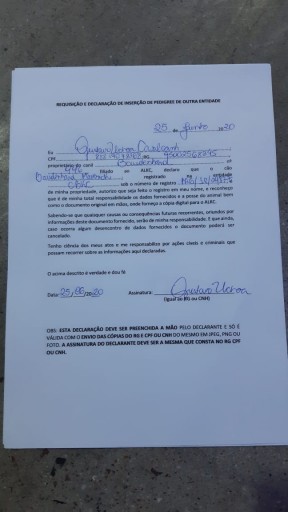 REQUISIÇÃO E DECLARAÇÃO DE INSERÇÃO DE PEDIGREE DE OUTRA ENTIDADE
25 de Junho 2020
Eu Gustavo
CPF RG
proprietário do canil nº
filiado ao ALKC, declaro que o cão
registrado na entidade
sob o número de registro
de minha propriedade, autorizo que seja feito o registro em meu nome, e reconheço
que é de minha total responsabilidade os dados fornecidos e a posse do animal bem
como o documento original em mãos, onde forneço a cópia digital para a ALKC.
Sabendo-se que quaisquer causas ou consequências futuras recorrentes, oriundas por
informações deste documento fornecido, serão de minha responsabilidade. E que ainda,
caso ocorra algum desencontro de dados fornecidos o documento poderá ser
cancelado.
Tenho ciência dos meus atos e me responsabilizo por ações cíveis e criminais que
possam recorrer sobre as informações aqui declaradas.
O acima descrito é verdade e dou fé
Data: 25/ /2020 Assinatura: Gustavo
(igual ao RG ou CNH)
OBS: ESTA DECLARAÇÃO DEVE SER PREENCHIDA A MÃO PELO DECLARANTE E SÓ É
VÁLIDA COM O ENVIO DAS CÓPIAS DO RG E CPF OU CNH DO MESMO EM JPEG, PNG OU
FOTO. A ASSINATURA DO DECLARANTE DEVE SER A MESMA QUE CONSTA NO RG CPF
OU CNH.